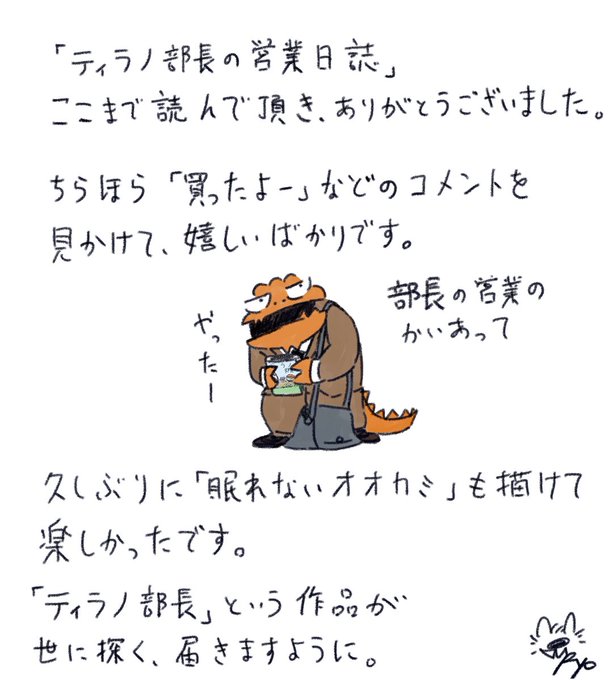 「ティラノ部長の営業日誌」
ここまで読んで頂き、ありがとうございました。
ちらほら「買ったよー」などのコメントを
見かけて、嬉しいばかりです。
部長の営業の
かいあって
やったー
久しぶりに「眠れないオオカミ」も描けて
楽しかったです。
「ティラノ部長」という作品が
世に深く、届きますように。
Ryo